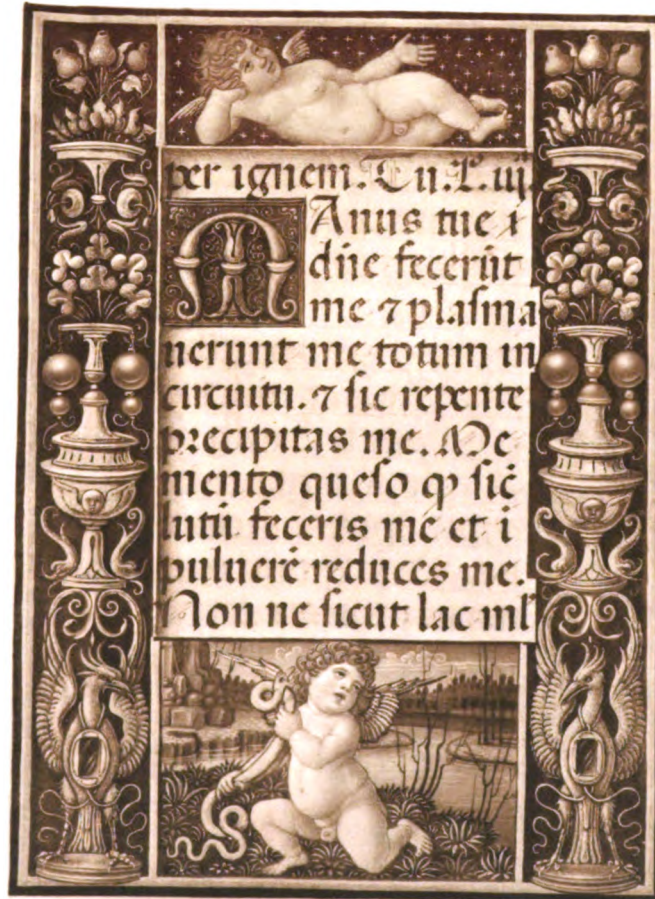 per ignem. Tu. L. iij.
MAnus tue
dñe fecerūt
me ⁊ plasma
uerunt me totum in
circuitu. ⁊ sic repente
precipitas me. Me
mento queso ꝙ sic̄
lutū feceris me et ī
puluerē reduces me.
Non ne sicut lac ml̄